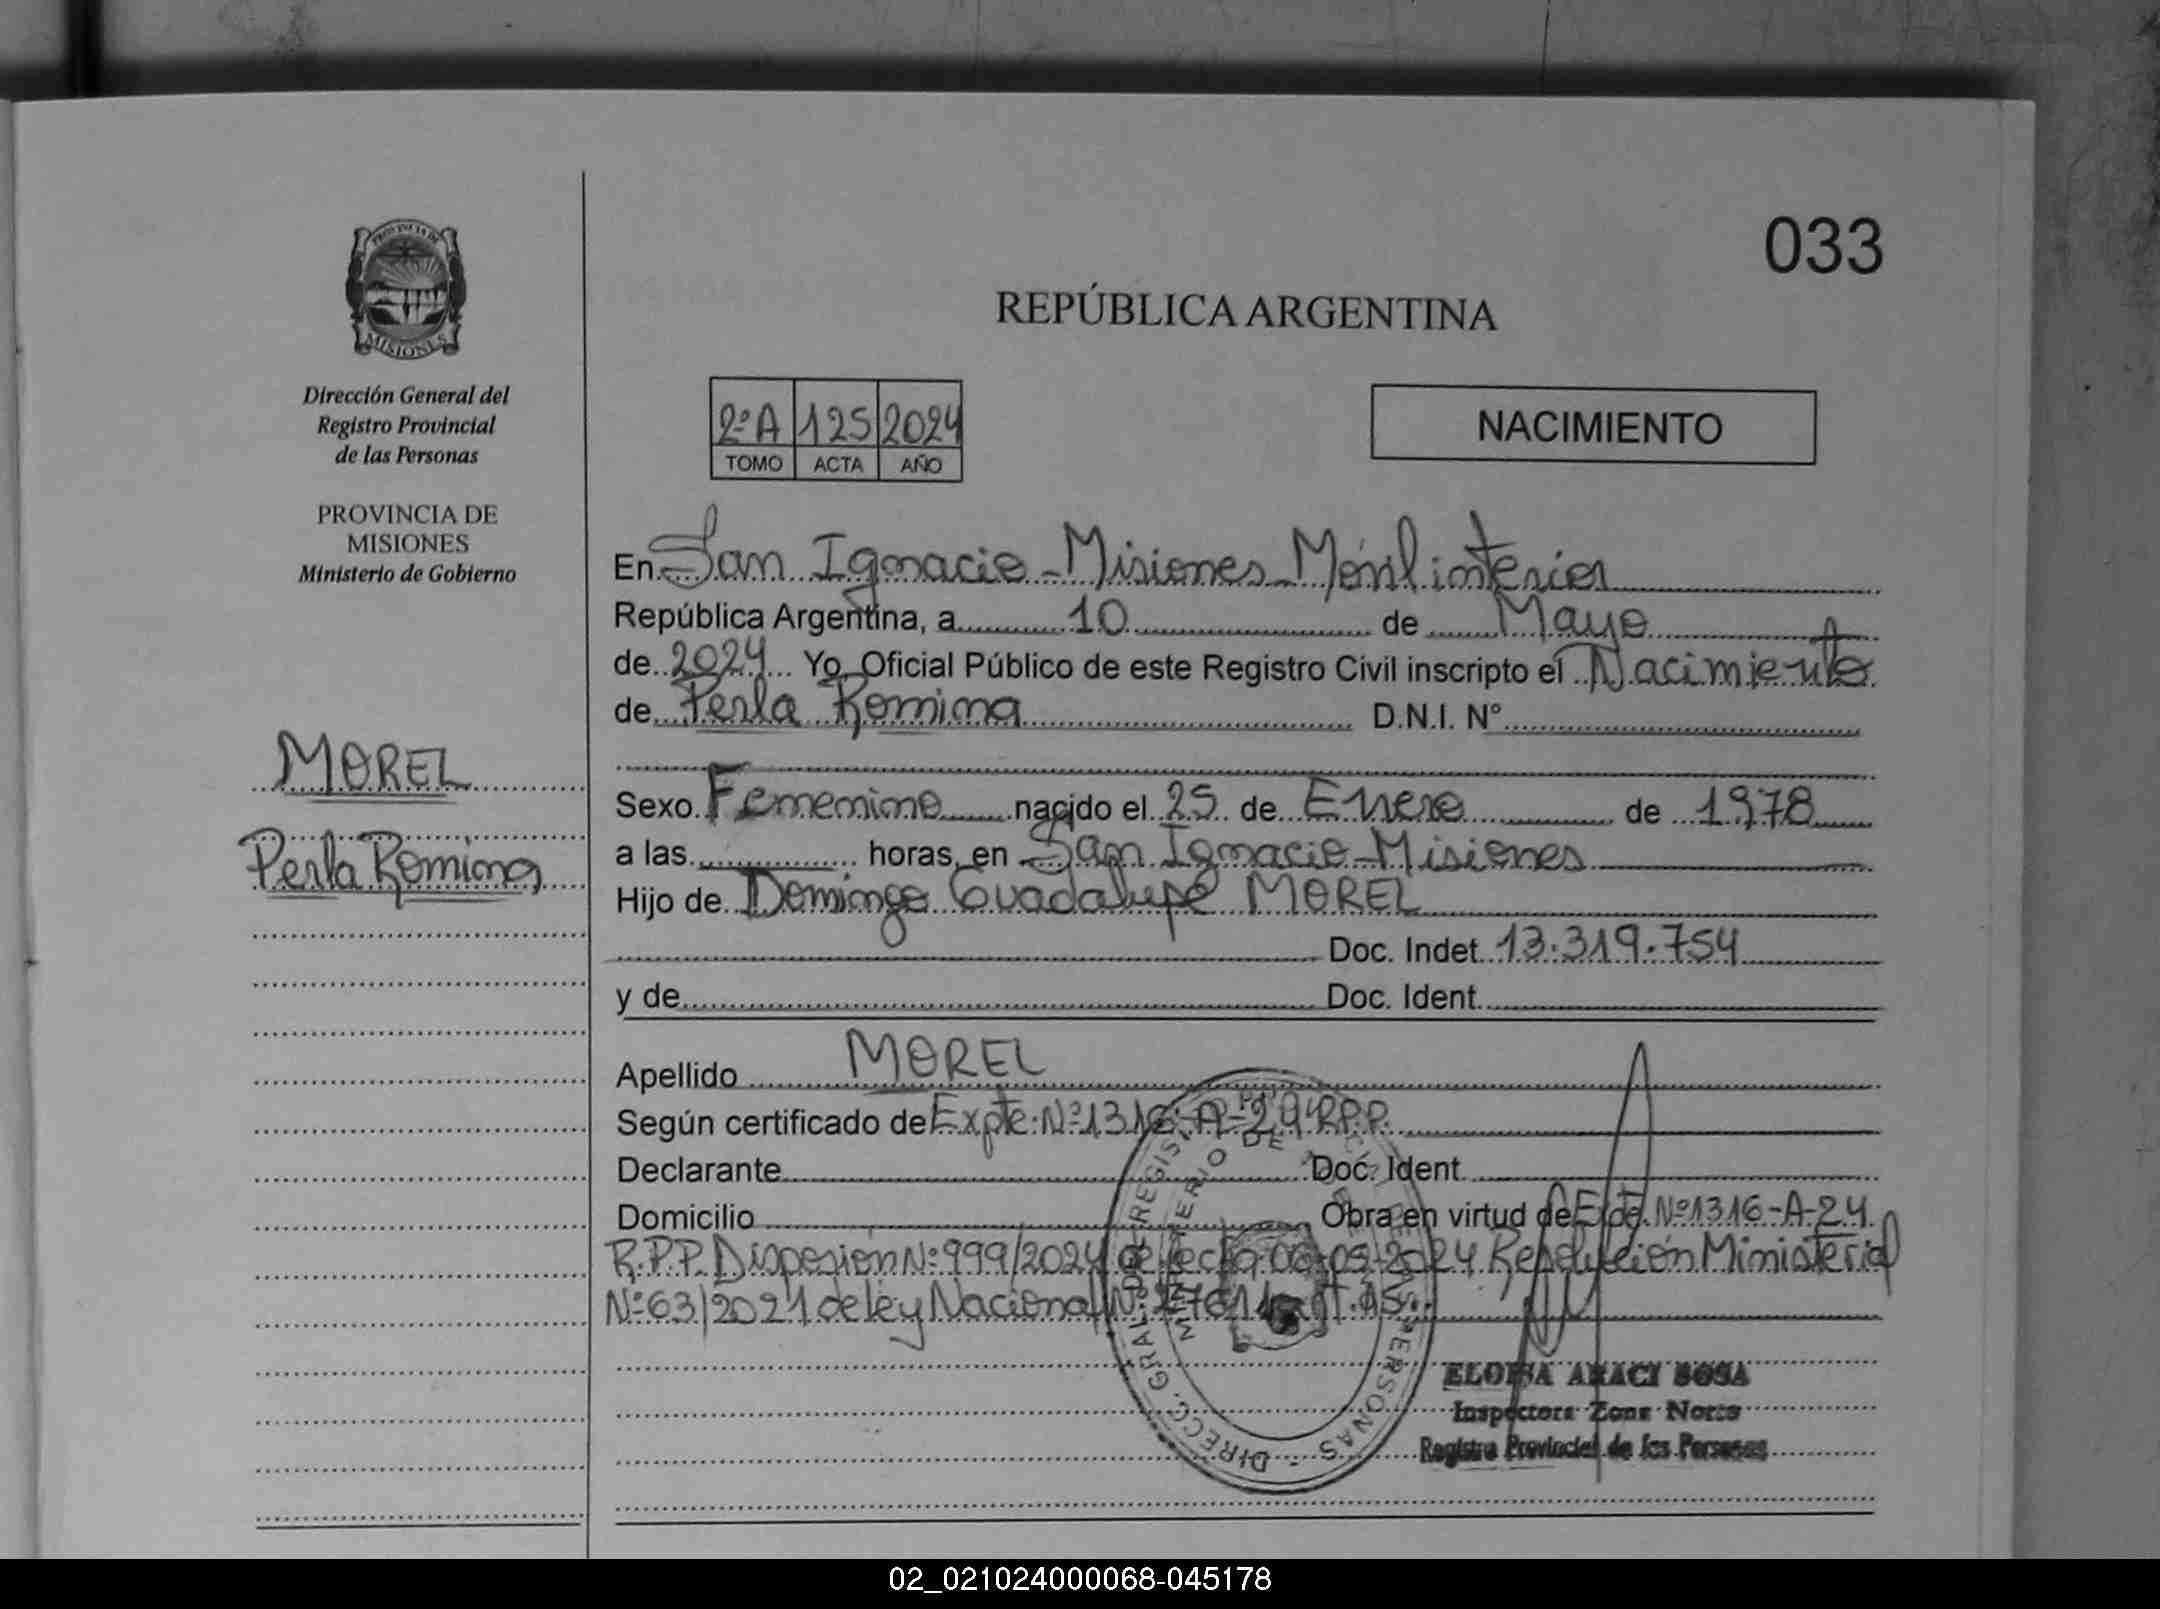 033
PROVINCIA DE
MISIONES
Dirección General del
Registro Provincial
de las Personas
PROVINCIA DE
MISIONES
Ministerio de Gobierno
MOREL
Perla Romina
REPÚBLICA ARGENTINA
2º A 125 2024
TOMO ACTA AÑO
NACIMIENTO
En San Ignacio - Misiones Móvil interior
República Argentina, a 10 de Mayo
de 2024 Yo, Oficial Público de este Registro Civil inscripto el Nacimiento
de Perla Romina D.N.I. N°
Sexo Femenino nacido el 25 de Enero de 1978
a las horas, en San Ignacio - Misiones
Hijo de Domingo Guadalupe MOREL
Doc. Indet. 13.319.754
y de Doc. Ident.
Apellido MOREL
Según certificado de Expte. Nº 1316-A-24 R.P.P.
Declarante Doc. Ident.
Domicilio Obra en virtud de Expte. Nº 1316-A-24
R.P.P. Disposión Nº 999/2024 de fecha 06-05-2024 Resolución Ministerial
Nº 63/2021 de ley Nacional Nº 27611 art. 15.
DIRECC. GRAL. DE REGIST PERSONAS
MINISTERIO DE
ELOISA ARACI SOSA
Inspectora Zona Norte
Registro Provincial de las Personas
02_021024000068-045178